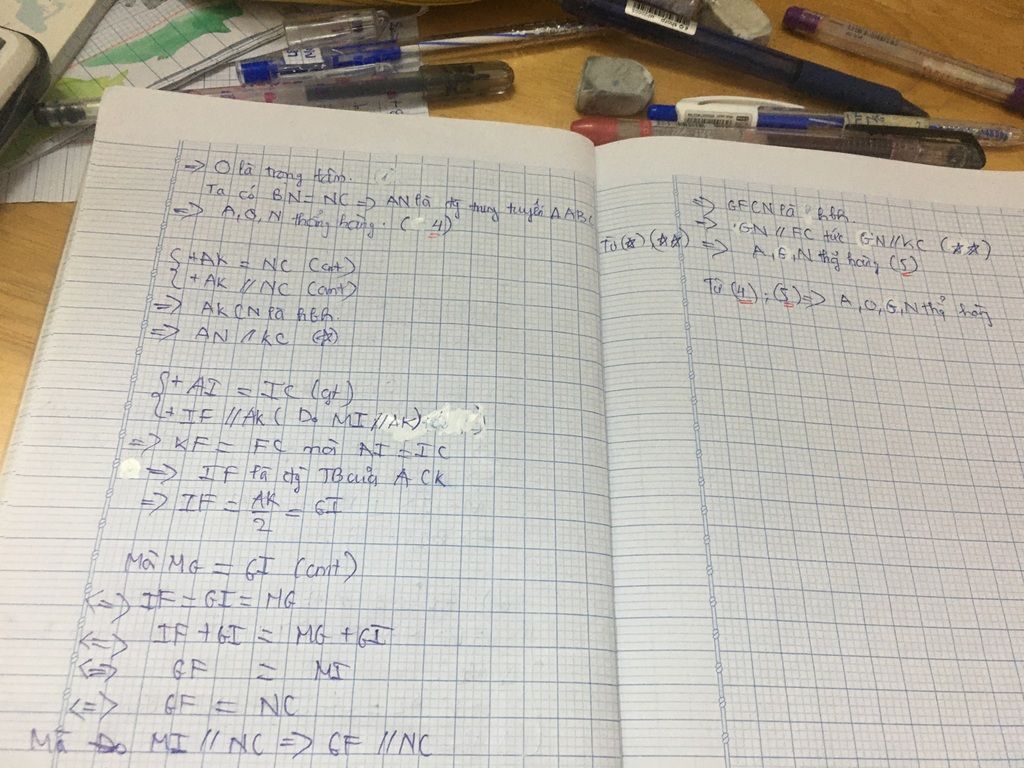 => O là trọng tâm.
Ta có BN = NC => AN là đg trung tuyến ΔABC
=> A, O, N thẳng hàng. (4)
{ + AK = NC (cmt)
{ + AK // NC (cmt)
=> AKCN là hbh.
=> AN // KC (*)
{ + AI = IC (gt)
{ + IF // AK ( Do MI // AK)
=> KF = FC mà AI = IC
=> IF là đg TB của ACK
=> IF = AK/2 = GI
Mà MG = GI (cmt)
<=> IF = GI = MG
<=> IF + GI = MG + GI
<=> GF = MI
<=> GF = NC
Mà Do MI // NC => GF // NC
=> GFCN là hbh.
=> GN // FC tức GN // KC (**)
Từ (*) (**) => A, G, N thẳ hàng (5)
Từ (4) ; (5) => A, O, G, N thẳ hàng